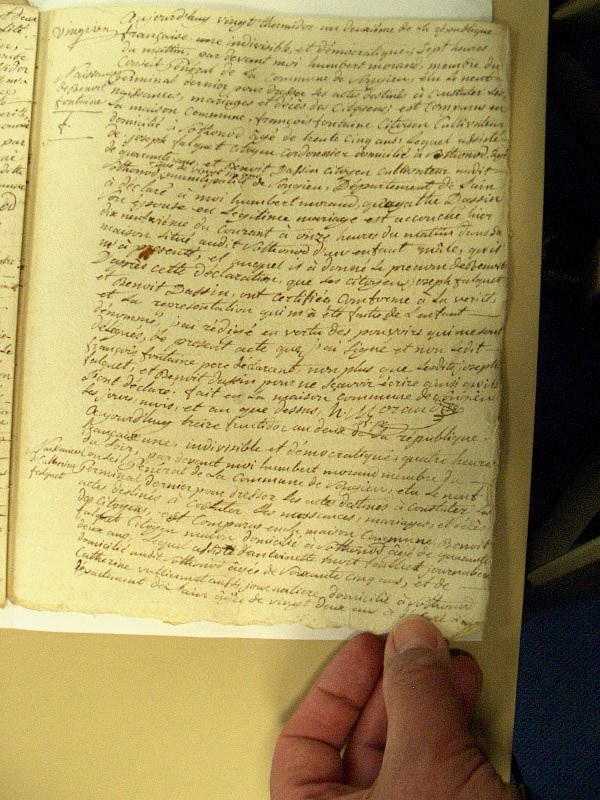 Aujourd'huy vingt thermidor an deuxième de la république
française une indivisible, et démocratique, sept heures
du matin, par devant moi humbert morand, membre du
Conseil général de la Commune de Vongien, élu le neuf
germinal dernier pour dresser les actes destinés à Constater les
Naissance
de Benoit
fontaine
naissances, mariages et décès des Citoyens; est Comparus en
la maison Commune, françois fontaine Citoyen Cultivateur
domicilié à Vothonod âgé de trente cinq ans, lequel assisté
de joseph falquet citoyen Cordonnier domicilié à Vothonod, âgé
de quarente ans, et Benoit Dassin citoyen cultivateur audit
Vothonod municipalité de Vongien, Département de l'ain
à déclaré à moi humbert morand, qu'agathe Dassin
son épouse en Légitime mariage est accouchée hier
dix neuvième du Courant à onze heures du matin dans sa
maison située audit Vothonod d'un enfant mâle, qu'il
m'à présenté, et auquel il à donné le prénom de Benoit
D'après cette déclaration, que les citoyens joseph falquet
et Benoit Dassin, ont certifiée Conforme à la vérité,
et la représentation qui m'a été faite de l'enfant
dénommé, j'ai rédigé en vertu des pouvoirs qui me sont
délégués, le présent acte que j'ai signé et non Ledit
françois fontaine père déclarant, non plus que Lesdits joseph
falquet, et Benoit Dassin pour ne sçavoir écrire ainsi qu'ils
l'ont déclaré. fait en La maison Commune de
les jour, mois, et an que dessus, h. Morand
Aujourd'huy treize fructidor an deux de la république
française une, indivisible et démocratique, quatre heures
Naissance
de Catherine
falquet
du soir, par devant moi humbert morand membre du
Conseil Général de la Commune de Vongien, élu Le neuf
germinal dernier pour dresser les actes destinés à Constater Les
des Citoyens, est Comparus en la maison Commune, Benoit
falquet Citoyen domicilié à Vothonod âgé de quarante
deux ans, lequel assisté d'antoinette journaliere
domiciliée audit Vothonod âgée de soixante cinq ans, et de
Catherine aussi journaliere, domiciliée à Vothonod
département de l'ain âgée de vingt deux ans